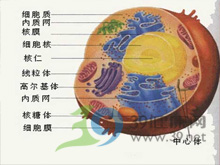 细胞质
内质网
核膜
细胞核
核仁
线粒体
高尔基体
内质网
核糖体
细胞膜
中心体
www.39.net